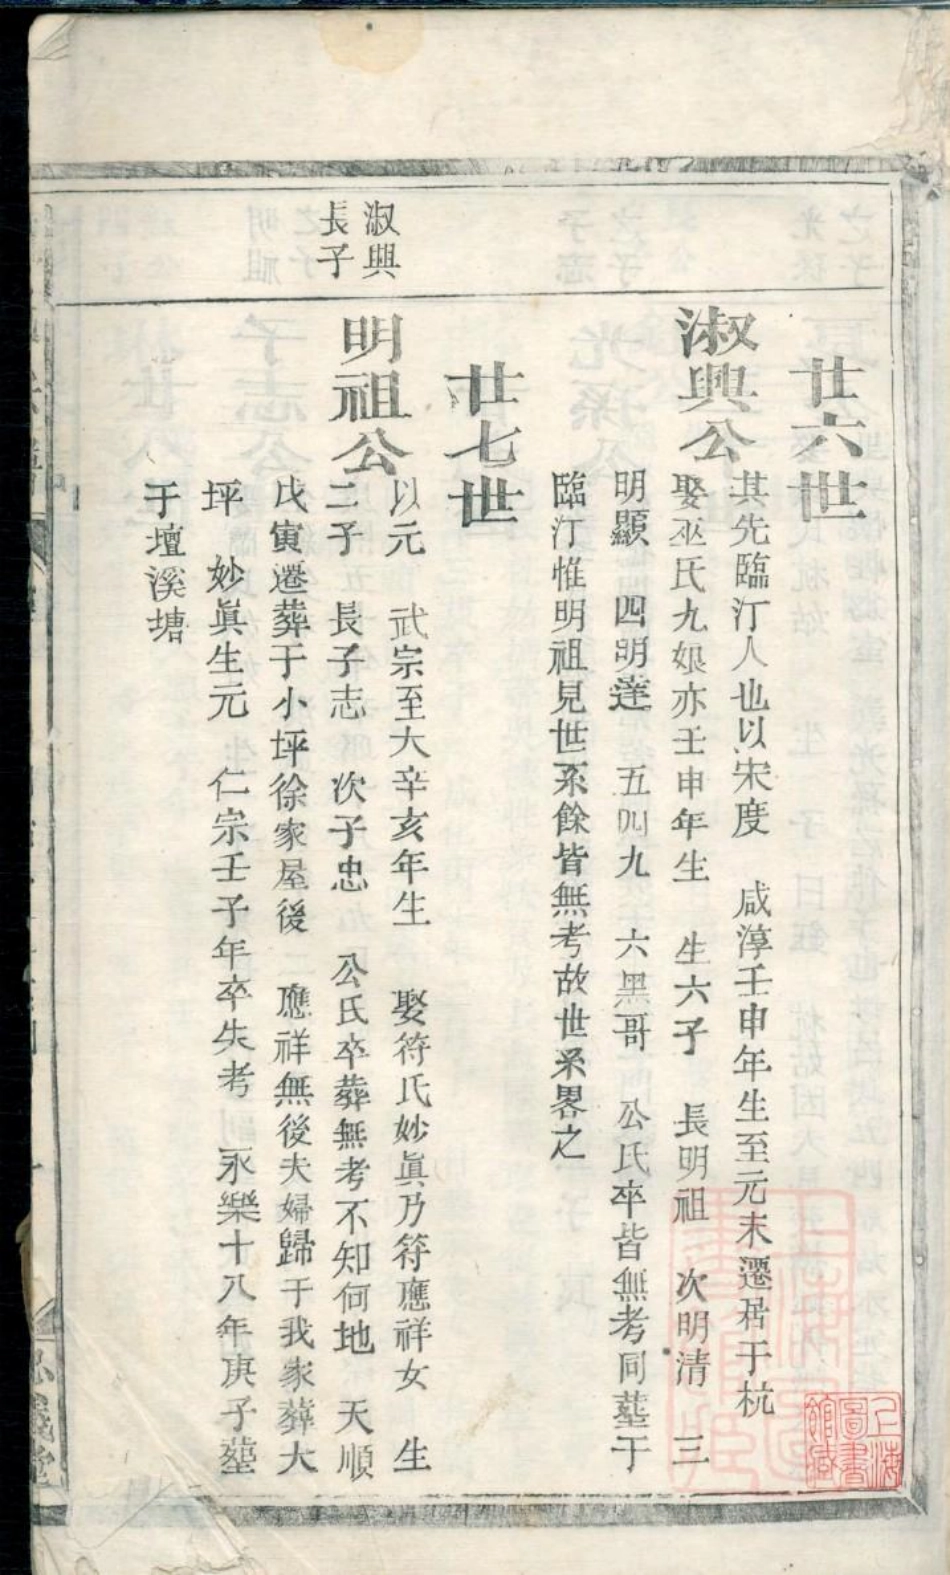 廿六世
淑興公
其先臨汀人也以宋度 咸淳壬申年生至元末遷居于杭
娶巫氏九娘亦壬申年生 生六子 長明祖 次明清 三
明顯 四明達 五四九 六黑哥 公氏卒皆無考同塟于
臨汀惟明祖見世系餘皆無考故世系畧之
廿七世
淑興
長子
明祖公
以元 武宗至大辛亥年生 娶符氏妙眞乃符應祥女 生
二子 長子志 次子忠 公氏卒葬無考不知何地 天順
戊寅遷葬于小坪徐家屋後 應祥無後夫婦歸于我家葬大
坪 妙眞生元 仁宗壬子年卒失考 永樂十八年庚子塟
于壇溪塘
上海
圖書
館藏